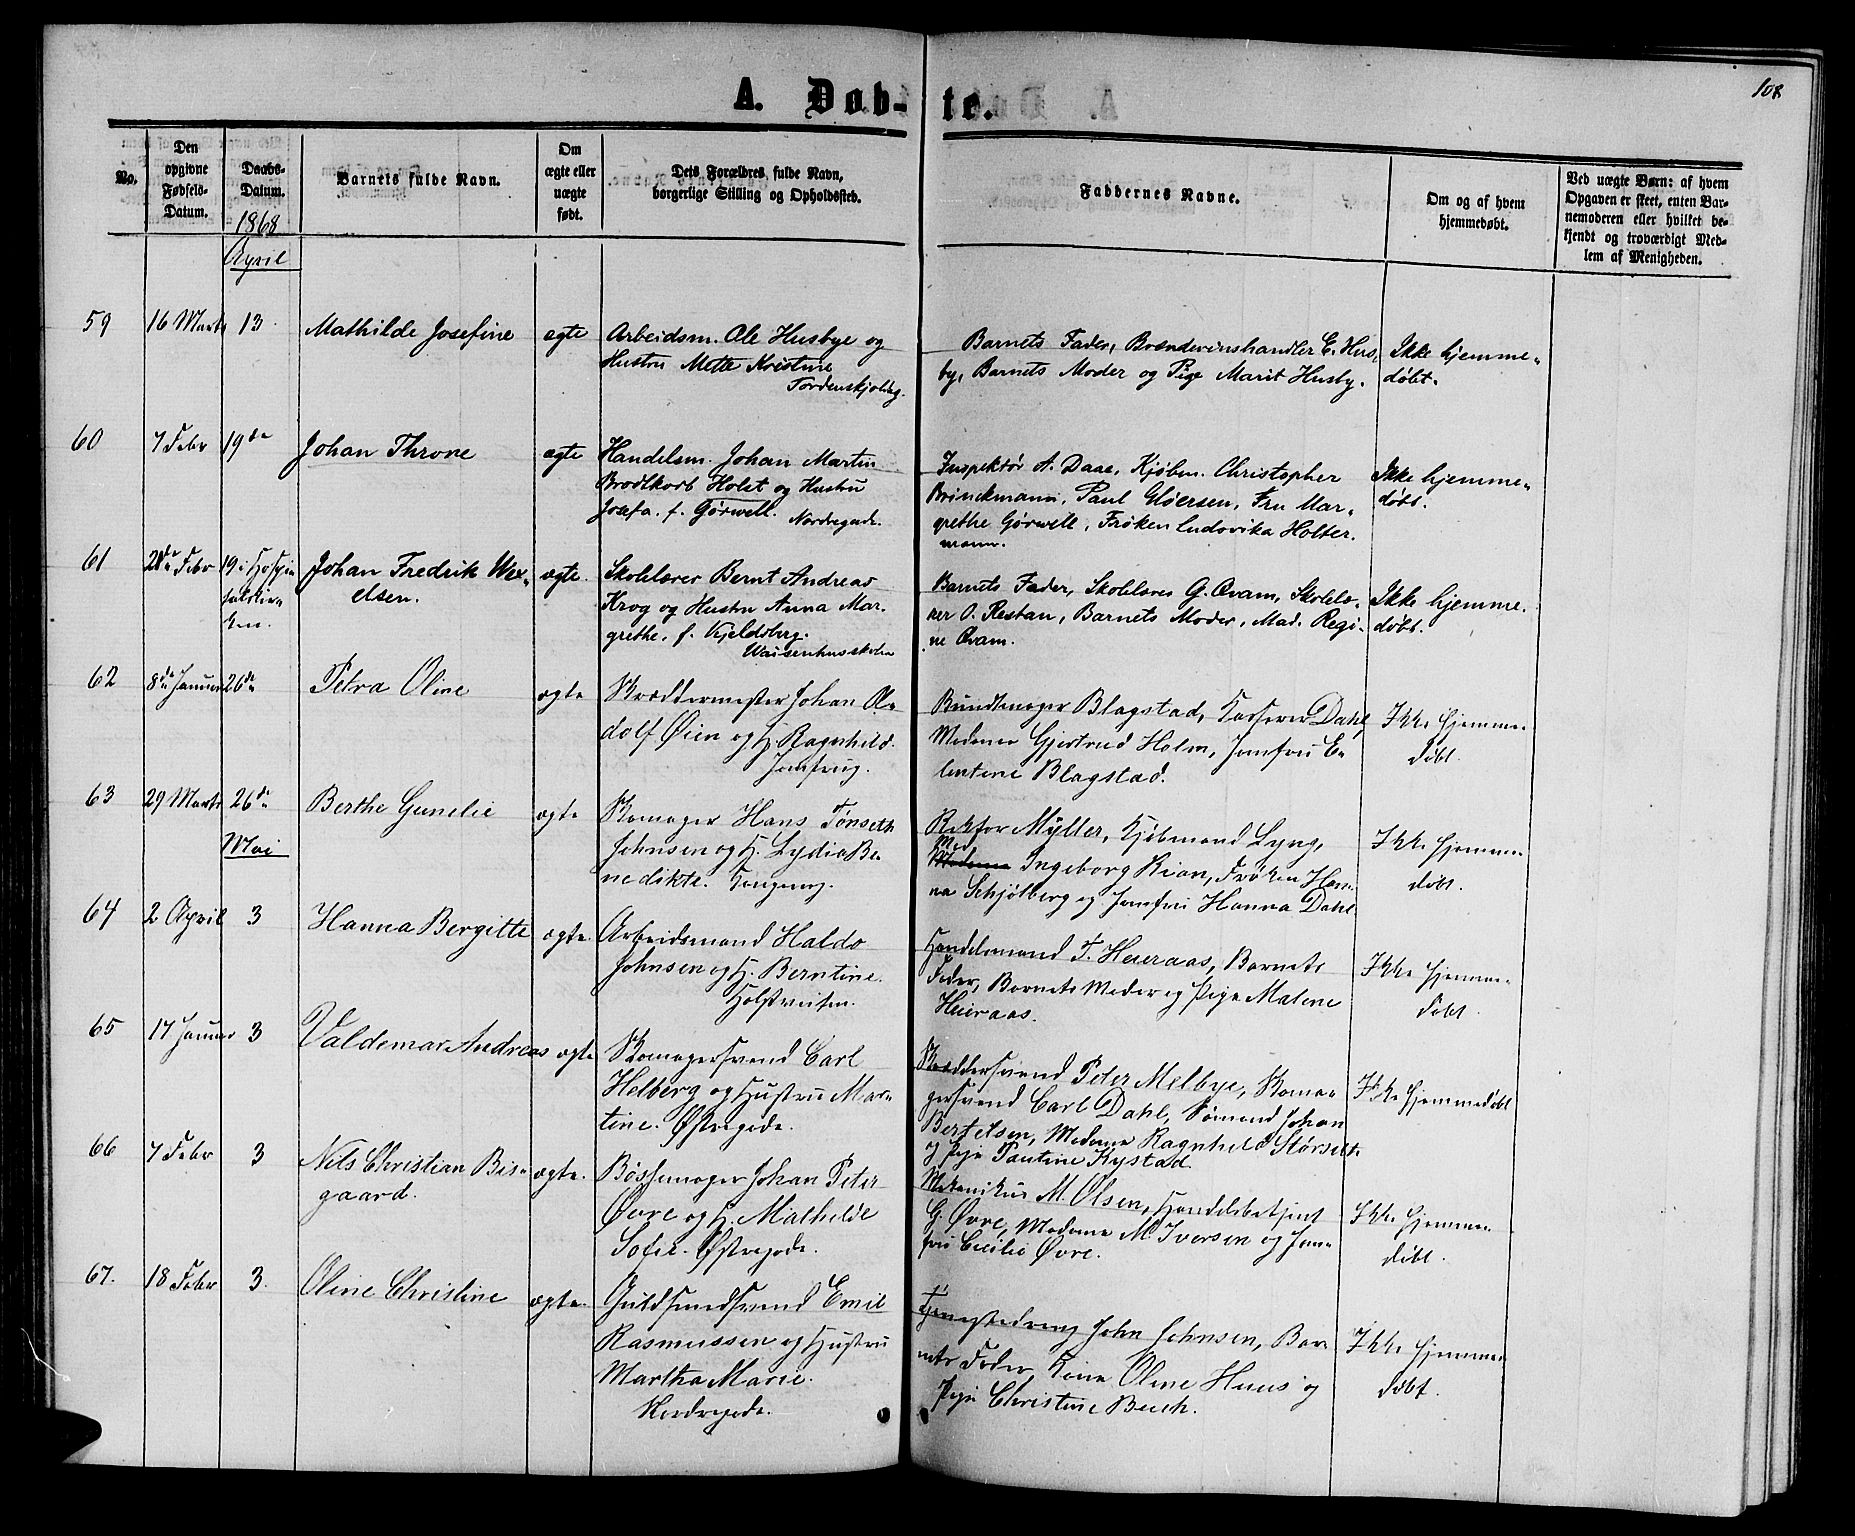 108
A. Døb-te.
No.
Den
opgivne
Fødsels-
Datum.
Daabs-
Datum.
1868
April
Barnets fulde Navn.
Om
ægte eller
uægte
født.
Dets Forældres fulde Navn,
borgerlige Stilling og Opholdssted.
Faddernes Navne.
Om og af hvem
hjemmedøbt.
Ved uægte Børn: af hvem
Opgaven er skeet, enten Bar-
nemoderen eller hvilket be-
kjendt og troværdigt Med-
lem af Menigheden.
59
16 Marts
13.
Mathilde Josefine
ægte
Arbeidsm. Ole Husbye og
Hustru Mette Kristine
Tordenskjoldsg.
Barnets Fader, Brændevinshandler E. Hus-
by, Barnets Moder og Pige Marit Husby.
Ikke hjemme-
døbt.
60
7 Febr
19de
Johan Throne
ægte
Handelsm. Johan Martin
Brodtkorb Holst og Hustru
Josefa. f. Gørwell. Nordregade.
Inspektør A. Daae, Kjøbm. Christopher
Brinckmann, Paul Gløersen, Fru Mar-
grethe Gørwell, Frøken Ludovika Holter-
mann.
Ikke hjemme-
døbt.
61
Febr
19 i Hospi-
talskir-
ken.
Johan Fredrik Wex-
elsen.
ægte.
Skolelærer Bernt Andreas
Krog og Hustru Anna Mar-
grethe, f. Kjeldsberg.
Waisenhusskolen
Barnets Fader, Skolelærer G. Qvam, Skolelæ-
rer O. Restan, Barnets Moder, Mad. Regi-
ne Qvam.
Ikke hjemme-
døbt.
62
8de Januar
26de
Petra Oline
ægte
Skræddermester Johan A-
dolf Øien og H. Ragnhild.
Jomfrug.
Bundtmager Blagstad, Kasserer Dahl,
Madame Gjertrud Holm, Jomfru E-
lentine Blagstad.
Ikke hjemme-
døbt.
63
29 Marts
26de
Berthe Gunelie
ægte
Skomager Hans Tønseth
Johnsen og H. Lydia Be-
nedikte. Kongensg.
Rektor Mÿller, Kjøbmand Lyng,
Mad
Madame Ingeborg Rian, Frøken Han-
na Schjølberg og Jomfru Hanna Dahl
Ikke hjemme-
døbt.
Mai
64
2 April
3
Hanna Bergitte
ægte.
Arbeidsmand Haldo
Johnsen og H. Berntine.
Holstveiten.
Handelsmand T. Heieraas, Barnets
Fader, Barnets Moder og Pige Malene
Heieraas.
Ikke hjemme-
døbt.
65
17 Januar
3
Valdemar Andreas
ægte
Skomagersvend Carl
Helberg og Hustru Mar-
tine. Østregade.
Skræddersvend Peter Melbye, Skoma-
gersvend Carl Dahl, Sømand Johan
Bertelsen, Madame Ragnhild Størseth
og Pige Pauline Rystad.
Ikke hjemmedøbt
66
7 Febr
3
Nils Christian Bis-
gaard.
ægte.
Bøssemager Johan Peter
Øvre og H. Mathilde
Sofie. Østregade.
Mekanikus M. Olsen, Handelsbetjent
G. Øvre, Madame M. Iversen og Jom-
fru Cecilie Øvre.
Ikke hjemme-
døbt.
67.
18 Febr
3.
Oline Christine
ægte.
Guldsmedsvend Emil
Rasmussen og Hustru
Martha Marie.
Nordregade.
Tjenestedreng John Johnsen, Bar-
nets Fader, Oline Huus og
Pige Christine Buch.
Ikke hjemme-
døbt.